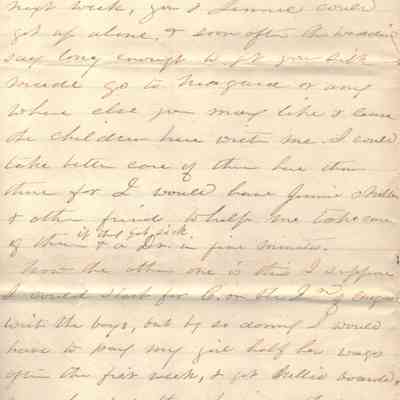 next week, you & Jennie could
get up alone & soon after the wedding
say long enough to get your silk
made go to Niagara or any
where else you may like & leave
the children here with me. I could
take better care of them here than
there for I would have Jennie
& other friend to help me take care
of them if they got sick & a Dr. in five minutes.
Now the other one is this I suppose
I could start for C. on the 2nd of August
with the boys, but by so doing I would
have to pay my girl half her wages
after the first week, & get boarded,